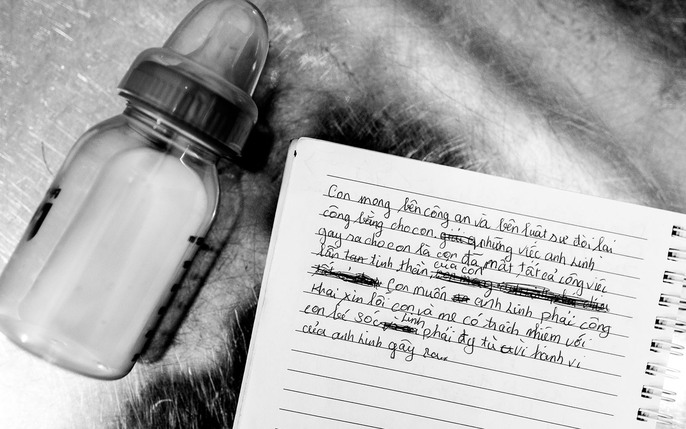 Con mong bên công an và bên luật sư đòi lại
công bằng cho con những việc anh Linh
gây ra cho con là con đã mất tất cả công việc
lẫn tan tinh thần của con
Con muốn anh Linh phải công
khai xin lỗi con và mẹ có trách nhiệm với
con bé sóc Linh phải đy tù vì hành vi
của anh Linh gây ra.